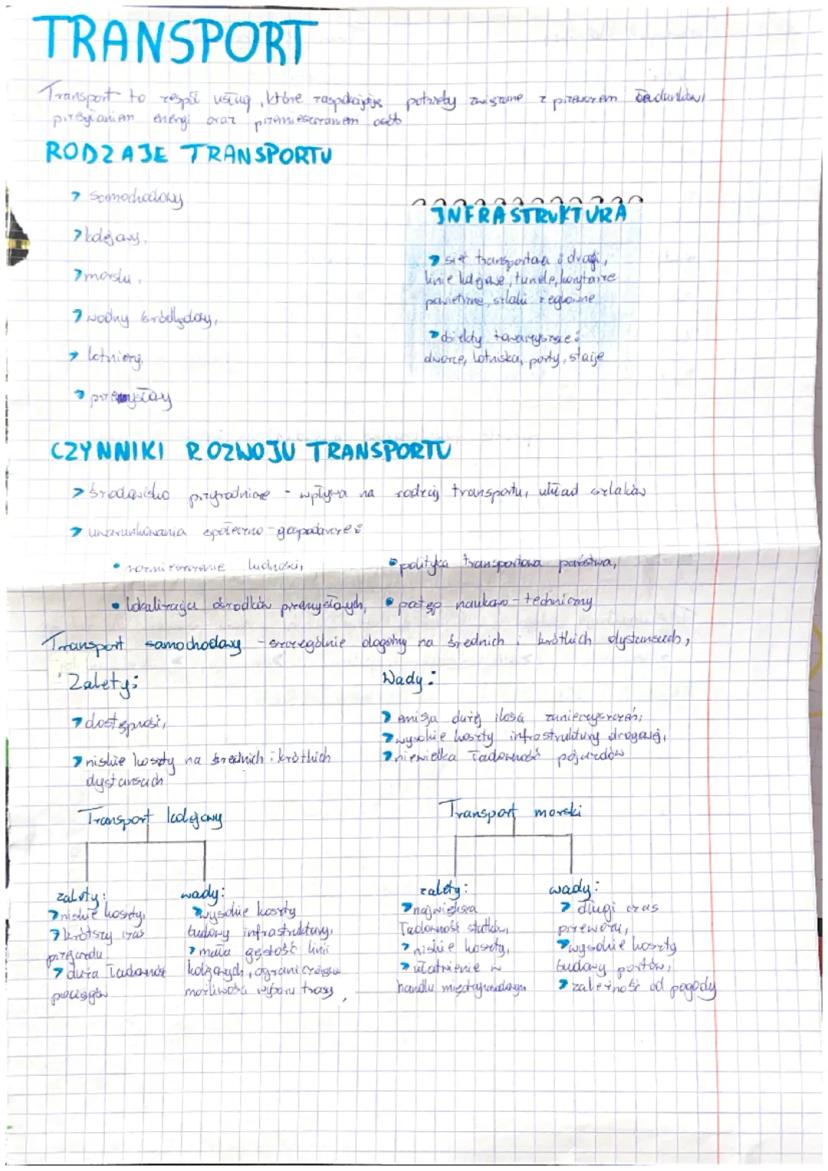 TRANSPORT
Transport to zespół usług, które zaspokajają potrzeby związane z przewozem ładunków,
przesyłaniem energi oraz przemieszczaniem osób
RODZAJE TRANSPORTU
samochodowy
kolejowy,
morski,
wodny śródlądowy,
lotniczy,
przemysłowy
INFRASTRUKTURA
sieć transportowa: drogi,
linie kolejowe, tunele, korytarze
powietrzne, szlaki żeglowne
obiekty towarzyszące:
dworce, lotniska, porty, stacje
CZYNNIKI ROZWOJU TRANSPORTU
środowisko przyrodnicze - wpływa na rodzaj transportu, układ szlaków
uwarunkowania społeczno-gospodarcze:
• rozmieszczenie ludności,
• polityka transportowa państwa,
• lokalizacja ośrodków przemysłowych,
• postęp naukowo-techniczny
Transport samochodowy - szczególnie dogodny na średnich i krótkich dystansach,
Zalety:
dostępność,
niskie koszty na średnich i krótkich
dystansach
Wady:
emisja dużej ilości zanieczyszczeń,
wysokie koszty infrastruktury drogowej,
niewielka ładowność pojazdów
Transport kolejowy
zalety:
niskie koszty,
krótszy czas
przejazdu
duża ładowność
pociągów
wady:
wysokie koszty
budowy infrastruktury,
mała gęstość linii
kolejowych, ograniczająca
możliwość wyboru trasy,
Transport morski
zalety:
największa
ładowność statków,
niskie koszty,
ułatwienie w
handlu międzynarodowym
wady:
długi czas
przewozu,
wysokie koszty
budowy portów,
zależność od pogody